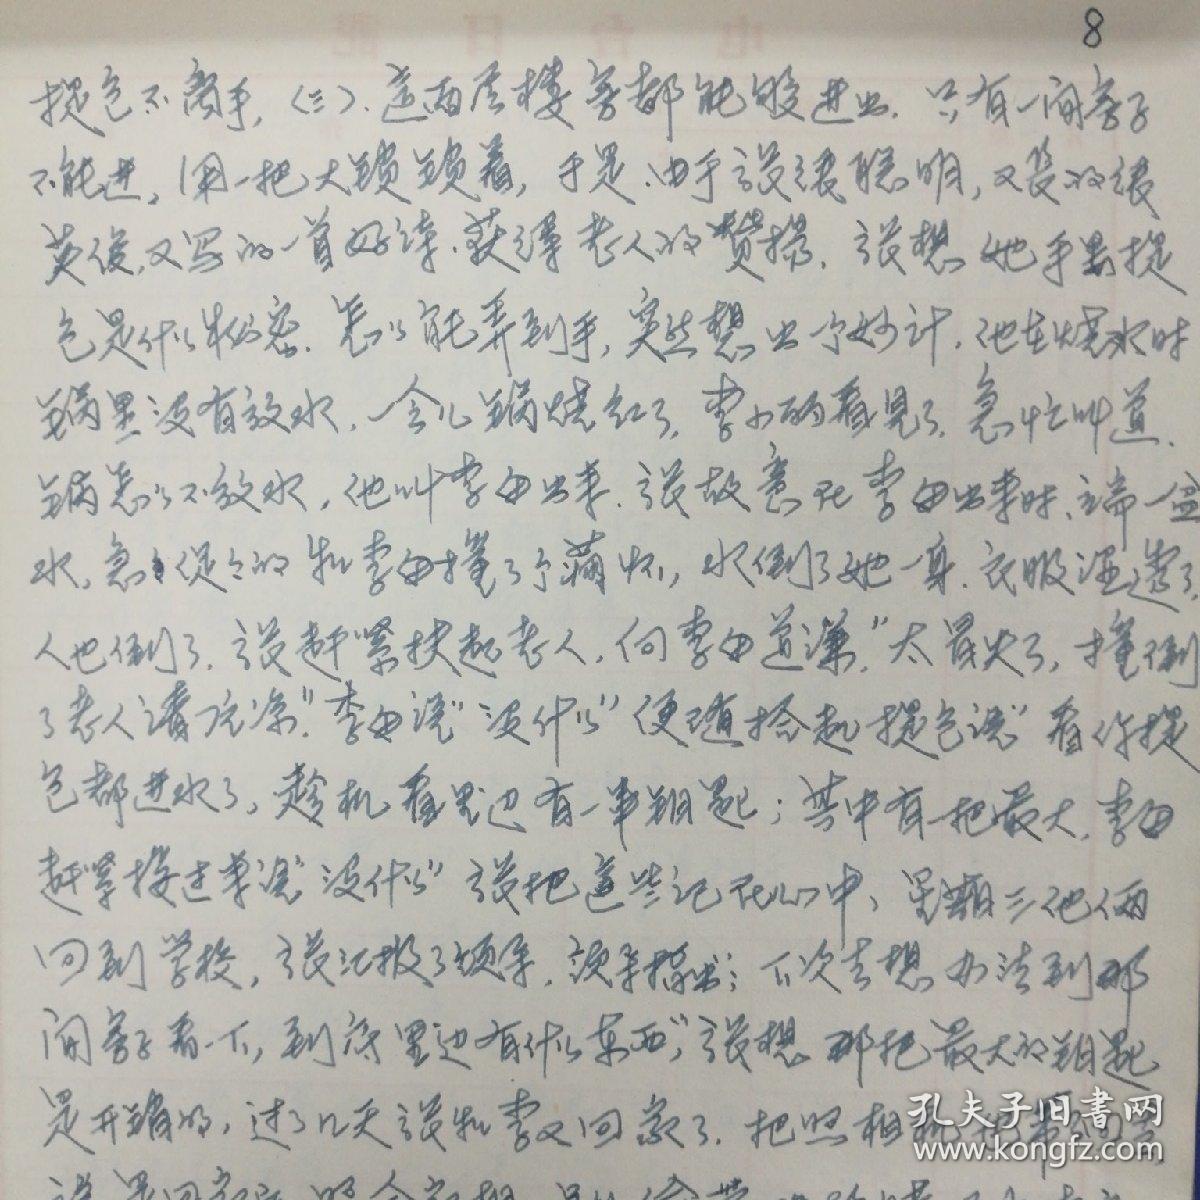 8
提包不离手,(三)、这两层楼旁都能够进出.只有一间房子
不能进,用一把大锁锁着,于是、由于张读聪明,又长的
英俊,又写的一首好,获得老人的赞扬.张想她手里提
包是什么秘密.怎么能弄到手,突然想出个妙计.他在烧水时
锅里没有放水,一会儿锅烧红了,李小丽看见了,急忙叫道.
锅怎么不放水,他叫李母出来.张故意在李母出来时、端一盆
水,急急促促的和李母撞了个满怀,水倒了她一身.衣服湿透了,
人也倒了.张赶紧扶起老人,向李母道谦,"太冒失了,撞倒
了老人请原谅"李母说"没什么"便随拾起提包说"看你提
包都进水了,趁机看里边有一串钥匙;其中有一把最大,李母
赶紧接过来说"没什么"张把这些记在心中,星期三他俩
回到学校,张汇报了领导,领导指出;下次去想办法到那
间房子看一下,到底里边有什么东西",张想那把最大的钥匙
是开锁的,过了几天张和李又回家了.把照相机
孔夫子旧书网
www.kongfz.com